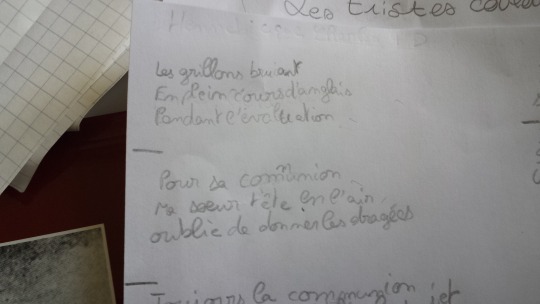 Les tristes
Les grillons bruiant
En plein cours d'anglais
Pendant l'évaluation
Pour sa communion
Ma soeur tête en l'air
oublie de donner les dragées
Toujours la communion